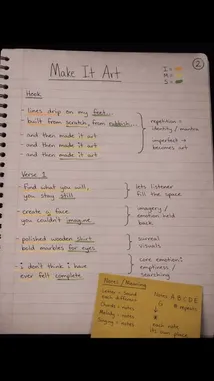 2
Make It Art
I =
M =
S =
Hook
- lines drip on my feet...
- built from scratch, from rubbish...
- and then made it art
- and then made it art
- and then made it art
repetition =
identity / mantra
imperfect →
becomes art
Verse 1
- find what you will,
you stay still.
lets listener
fill the space
- create a face
you couldn't imagine
imagery /
emotion held
back
- polished wooden shirt
bold marbles for eyes
surreal
visuals
- i don't think i have
ever felt complete
core emotion:
emptiness /
searching
Notes / Meaning
each different
Chords = notes
Melody = notes
Singing = notes
Notes: A, B, C, D, E
each note